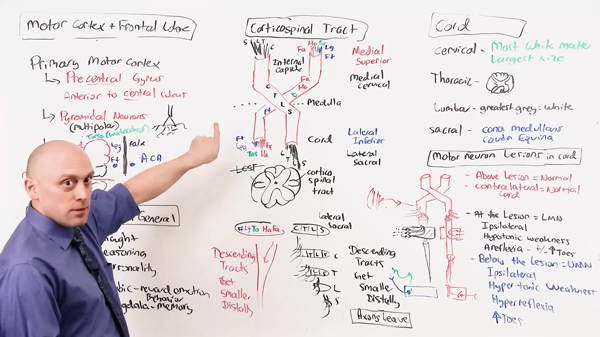 Motor Cortex + Frontal Lobe
Primary Motor Cortex
↳ Precentral Gyrus
Anterior to central sulcus
↳ Pyramidal Neurons
(multipolar)
Torso (watershed)
Falx
Ft
ACA
General
Corticospinal Tract
S L T C
Fa Ha To Lg Ft
Medial
Superior
Internal
Capsule
Fa
Ha
Medial
cervical
C
T
L
S
Medulla
Ft
Leg
To Ha
Cord
Lateral
Inferior
Lateral
Sacral
C
T
L
S
cortico
spinal
tract
Lateral
Sacral
Ft Lg To Ha Fa
C T L S
Descending
Tracts
Get
Smaller
Distally
C
T
L
S
Descending
Tracts
Get
Smaller
Distally
Axons Leave
Cord
Cervical - Most white matter
Largest size
Thoracic
Lumbar - greatest grey:white
Sacral - conus medullaris
cauda Equina
Motor neuron Lesions in cord
- Above lesion = Normal
- contralateral = Normal
cord
- At the Lesion = LMN
Ipsilateral
Hypotonic weakness
Areflexia - +/- ↑Toes
- Below the Lesion = UMN
Ipsilateral
Hypertonic Weakness
Hyperreflexia
↑Toes